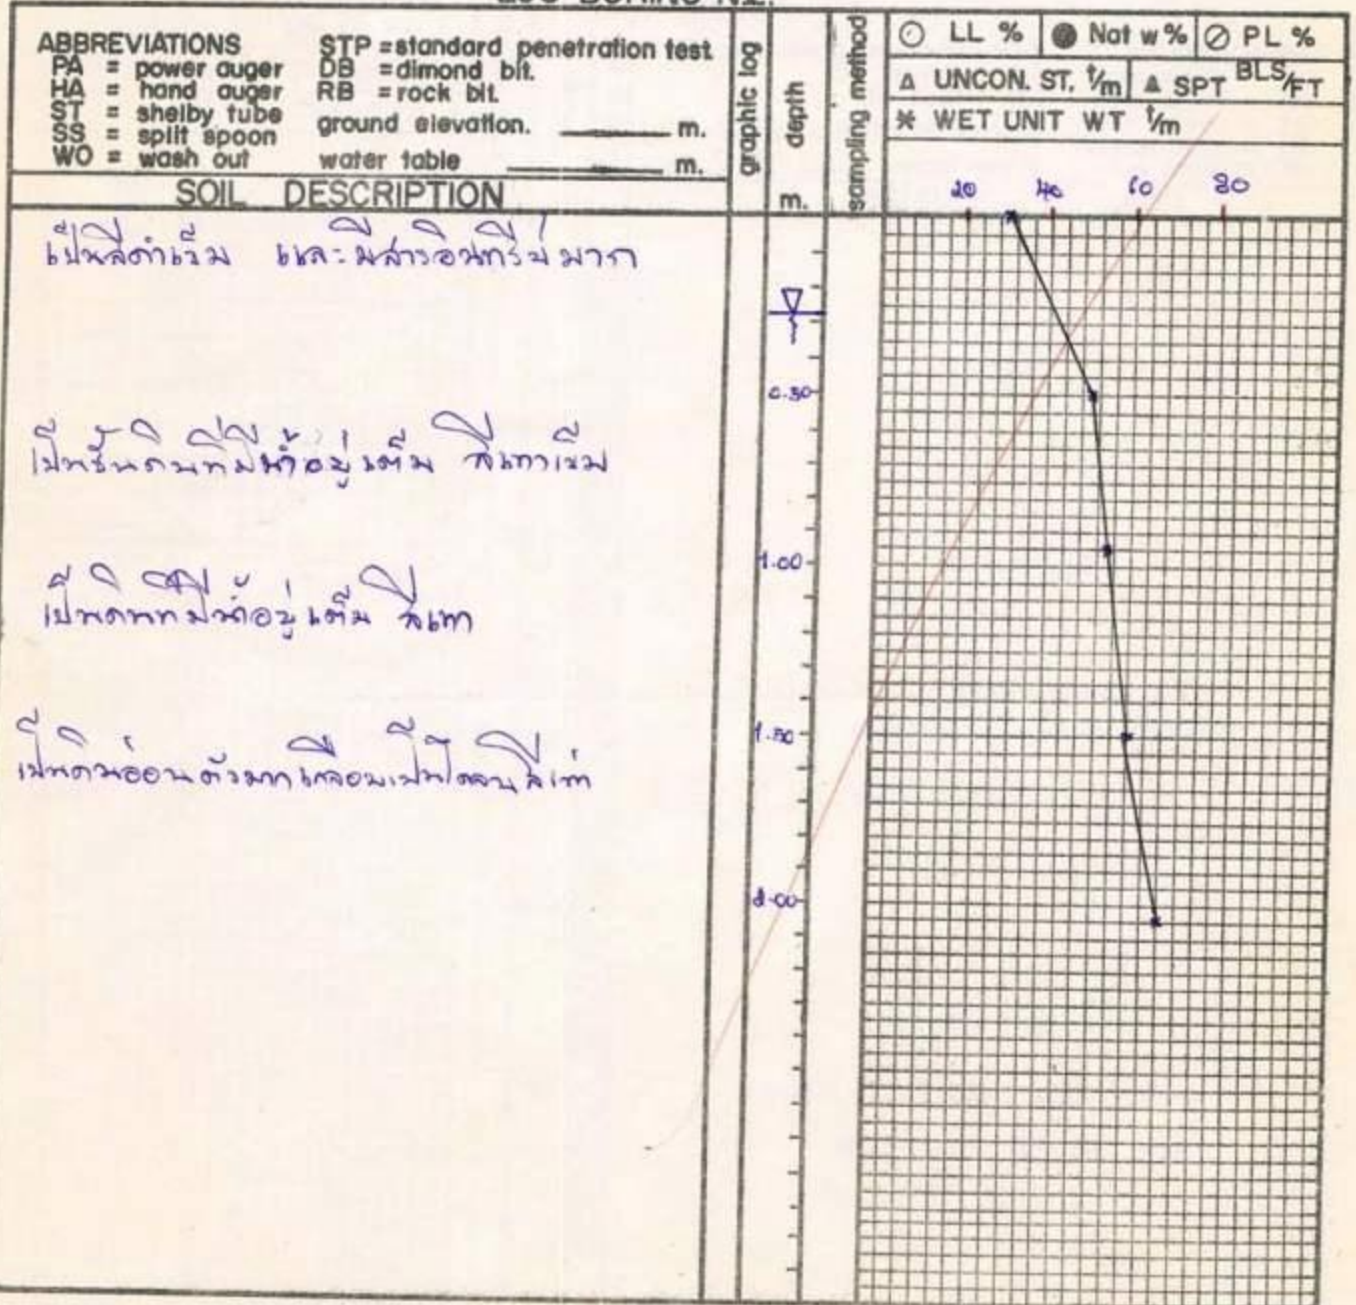 LOG BORING NO.
ABBREVIATIONS
PA = power auger
HA = hand auger
ST = shelby tube
SS = split spoon
WO = wash out
STP = standard penetration test
DB = dimond bit.
RB = rock bit.
ground elevation. m.
water table m.
SOIL DESCRIPTION
graphic log
depth
m.
sampling method
LL % Nat w % PL %
UNCON. ST. t/m SPT BLS/FT
WET UNIT WT t/m
20 40 60 80
เป็นสีดำเข้ม และมีสารอินทรีย์มาก
0.50
เป็นชั้นดินที่มีน้ำอยู่เต็ม สีเทาเข้ม
1.00
เป็นดินที่มีน้ำอยู่เต็ม สีเทา
1.50
เป็นดินอ่อนตัวมากเกือบเป็นโคลน สีเทา
2.00